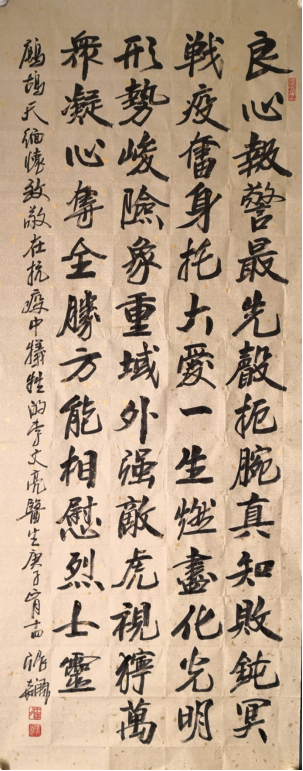 良心報警最先聲扼腕真知敗鈍冥
戰疫奮身托大愛一生燃盡化光明
形勢峻險象重域外强敵虎視獰萬
衆凝心奪全勝方能相慰烈士靈
鷓鴣天 緬懷致敬在抗疫中犧牲的李文亮醫生 庚子